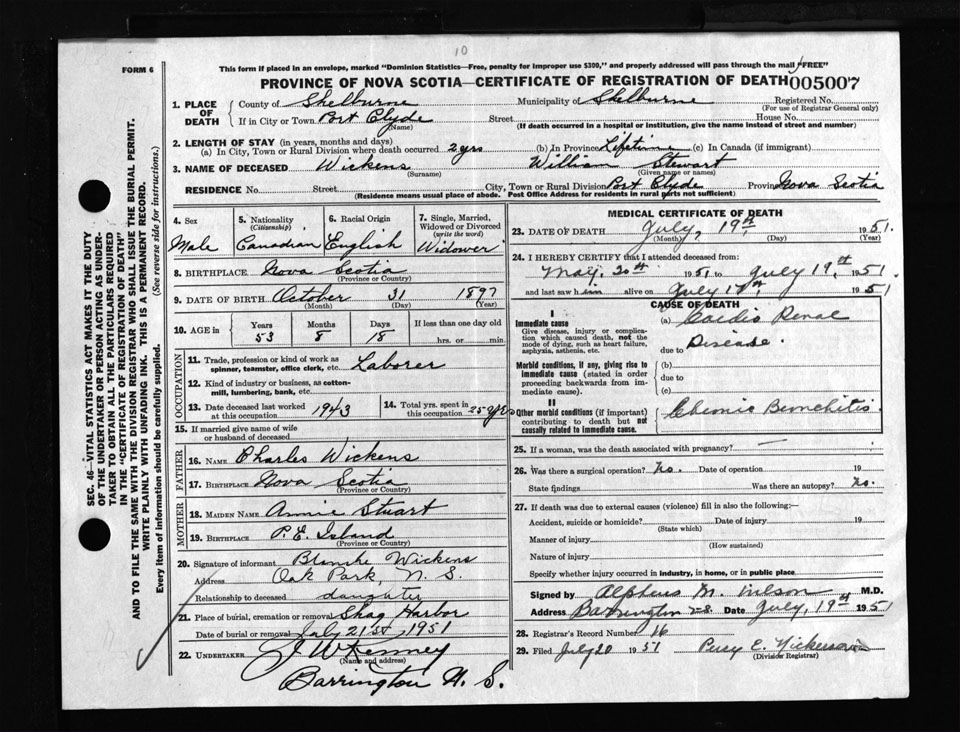 10
FORM 6
This form if placed in an envelope, marked "Dominion Statistics—Free, penalty for improper use $300," and properly addressed will pass through the mail "FREE"
PROVINCE OF NOVA SCOTIA—CERTIFICATE OF REGISTRATION OF DEATH 005007
1. PLACE OF DEATH County of Shelburne Municipality of Shelburne Registered No.
(For use of Registrar General only)
If in City or Town Port Clyde Street House No.
(Name) (If death occurred in a hospital or institution, give the name instead of street and number)
2. LENGTH OF STAY (in years, months and days)
(a) In City, Town or Rural Division where death occurred 2 yrs (b) In Province Lifetime (c) In Canada (if immigrant)
3. NAME OF DECEASED Wickens William Stewart
(Surname) (Given name or names)
RESIDENCE No. Street City, Town or Rural Division Port Clyde Province Nova Scotia
(Residence means usual place of abode. Post Office Address for residents in rural parts not sufficient)
4. Sex
Male
5. Nationality
(Citizenship)
Canadian
6. Racial Origin
English
7. Single, Married, Widowed or Divorced
(write the word)
Widower
8. BIRTHPLACE Nova Scotia
(Province or Country)
9. DATE OF BIRTH October 31 1897
(Month) (Day) (Year)
10. AGE in Years Months Days If less than one day old
53 8 18 hrs. or min.
OCCUPATION
11. Trade, profession or kind of work as
spinner, teamster, office clerk, etc. Laborer
12. Kind of industry or business, as cotton-
mill, lumbering, bank, etc.
13. Date deceased last worked at this occupation 1943
14. Total yrs. spent in this occupation 25 yrs
15. If married give name of wife
or husband of deceased
FATHER
16. NAME Charles Wickens
17. BIRTHPLACE Nova Scotia
(Province or Country)
MOTHER
18. MAIDEN NAME Annie Stuart
19. BIRTHPLACE P.E. Island
(Province or Country)
20. Signature of informant Blanche Wickens
Address Oak Park, N. S.
Relationship to deceased daughter
21. Place of burial, cremation or removal Shag Harbor
Date of burial or removal July 21st, 1951
22. UNDERTAKER J W Kenney
(Name and address)
Barrington N. S.
MEDICAL CERTIFICATE OF DEATH
23. DATE OF DEATH July, 19th 1951
(Month) (Day) (Year)
24. I HEREBY CERTIFY that I attended deceased from:
May. 20th 1951 to July 19th 1951
and last saw him alive on July 17th 1951
CAUSE OF DEATH
I
Immediate cause
Give disease, injury or complication which caused death, not the mode of dying, such as heart failure, asphyxia, asthenia, etc.
(a) Cardio Renal
Disease.
due to
Morbid conditions, if any, giving rise to immediate cause (stated in order proceeding backwards from immediate cause).
(b)
due to
(c)
II
Other morbid conditions (if important) contributing to death but not causally related to immediate cause.
Chronic Bronchitis.
25. If a woman, was the death associated with pregnancy? —
26. Was there a surgical operation? No. Date of operation 19
State findings Was there an autopsy? No.
27. If death was due to external causes (violence) fill in also the following:
Accident, suicide or homicide? Date of injury 19
(State which)
Manner of injury
(How sustained)
Nature of injury
Specify whether injury occurred in industry, in home, or in public place
Signed by Alpheus M. Wilson M.D.
Address Barrington N.S. Date July, 19th 1951
28. Registrar's Record Number 16
29. Filed July 20 1951 Percy E. Nickerson
(Division Registrar)
SEC. 46—VITAL STATISTICS ACT MAKES IT THE DUTY
OF THE UNDERTAKER OR PERSON ACTING AS UNDER-
TAKER TO OBTAIN ALL THE PARTICULARS REQUIRED
IN THE "CERTIFICATE OF REGISTRATION OF DEATH"
AND TO FILE THE SAME WITH THE DIVISION REGISTRAR WHO SHALL ISSUE THE BURIAL PERMIT.
WRITE PLAINLY WITH UNFADING INK. THIS IS A PERMANENT RECORD.
Every item of information should be carefully supplied. (See reverse side for instructions.)